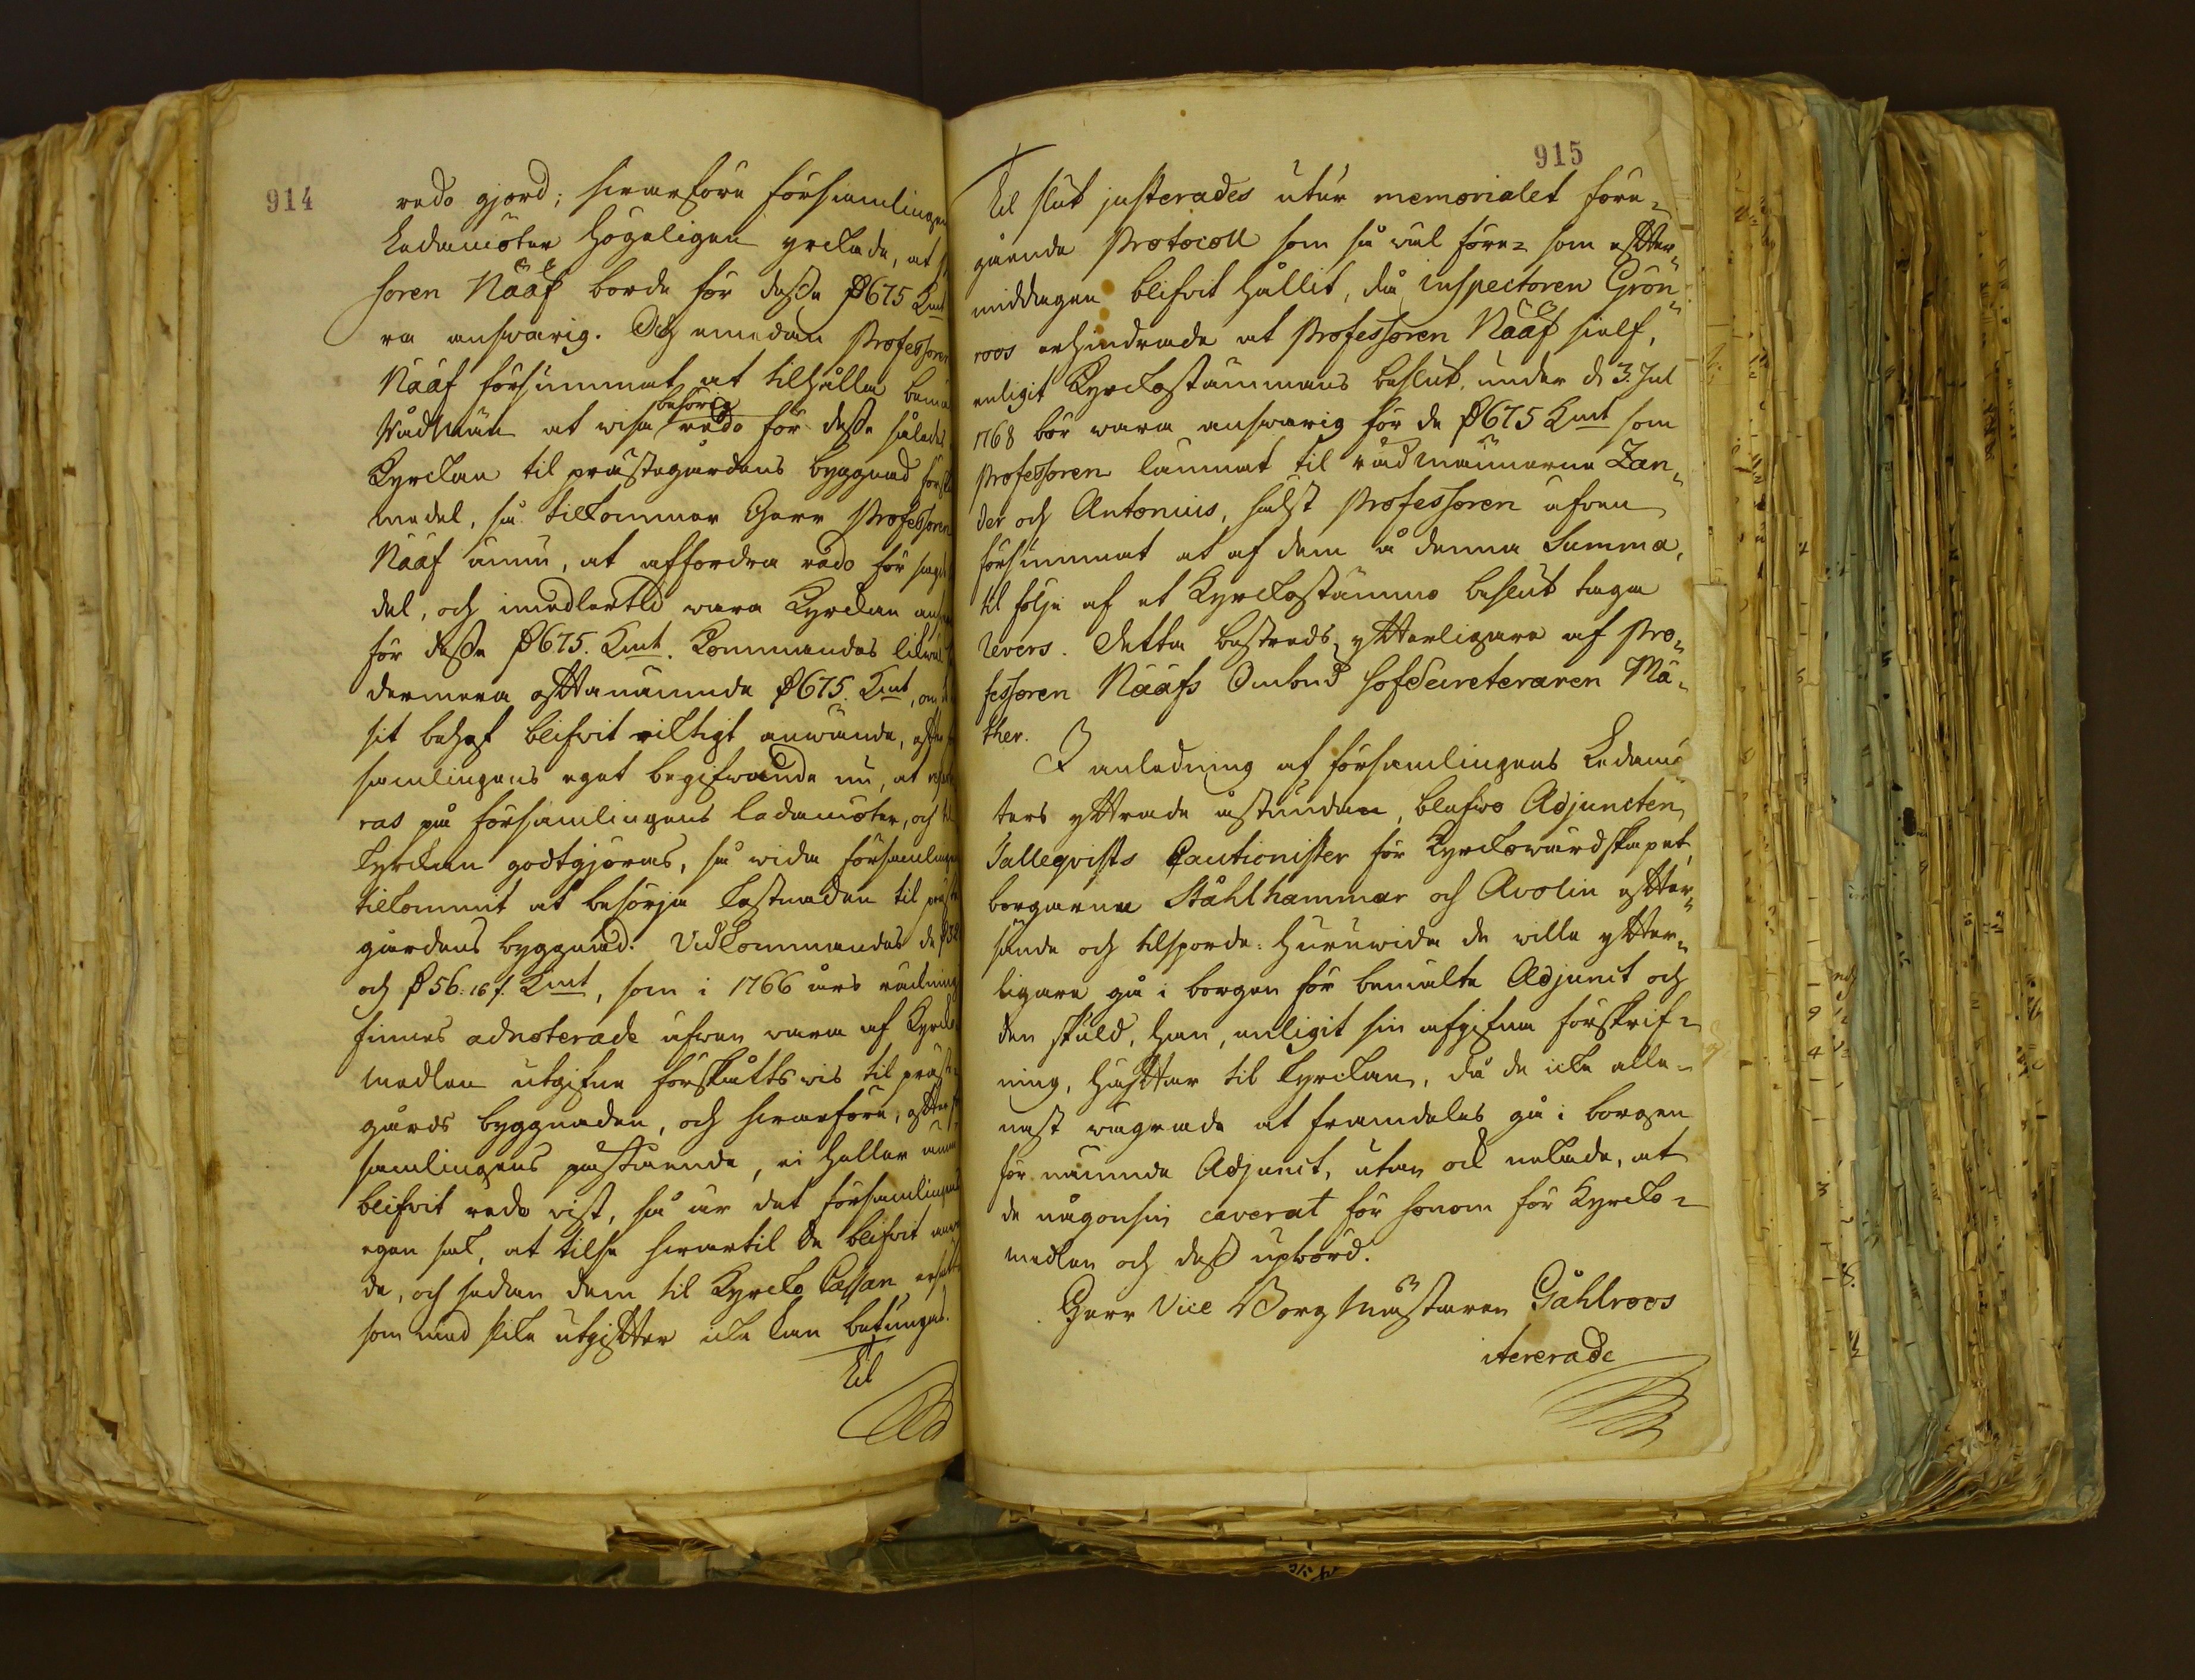 914
redo gjord; hwarföre församlingen
Ledamöter högeligen yrckade, at
soren Nääf borde för dessa 675 Kmt
ra answarig. Och emedan Professoren
Nääf försummat at tilhålla
Rådmän at wisa behörig redo för desse således
Kyrckan til prästegårdens byggnad
medel, så tilkommer Herr Professoren
Nääf ännu, at affordra redo för
del, och imedlertid wara Kyrckan
för dessa 675. Kmt. Kommandes likwäl
dermera oftanämnde 675. Kmt, om
sit behof blifwit riktigt anwände, efter
samlingens eget begifwande nu, at
ras på församlingens ledamöter, och til
Kyrckan godtgjöras, så wida församlingen
tilkommit at besörja kostnaden til
gårdens byggnad. Vidkommandes de
och 56: 16 f. Kmt, som i 1766 års räkning
finnes adnoterade äfwen wara af Kyrcko
medlen utgifne förskåttswis til präste-
gårds byggnaden, och hwarföre, efter
samlingens påstående, ei heller
blifvit redo vist, så är det församlingens
egen sak, at tilse hwartil de blifvit
de, och sedan dem til Kyrcko Cassan
som med slike utgifter icke kan betungas.
Til
915
Til slut justerades utur memorialet före-
gående Protocoll som så wäl före- som efter-
middagen blifvit hållit, då Inspectoren Grön-
roos erhindrade at Professoren Nääf sielf,
enligit Kyrckostämmans beslut under d 3. Jul
1768 bör wara answarig för de 675 Kmt som
Professoren lämnat til rådmännerne Zan-
der och Antonius, hälst Professoren äfwen
försummat at af dem å denna Summa,
til följe af et Kyrckostämmo beslut taga
Revers. Detta bestreds ytterligare af Pro-
fessoren Nääfs Ombud Hofsecreteraren Mä-
ther.
I anledning af församlingens Ledamö-
ters yttrade åstundan, blefwo Adjuncten
Talleqvists Cautionister för Kyrckowärdskapet,
borgarena Ståhlhammar och Avolin efter-
sände och tilsporde: huruwida de wille ytter-
ligare gå i borgen för bemälte Adjunct och
den skuld, han, enligit sin afgifna förskrif-
ning, häftar til kyrckan, då de icke alle-
nast wägrade at framdeles gå i borgen
för nämnde Adjunct, utan ock nekade, at
de någonsin caverat för honom för Kyrcko-
medlen och dess upbörd.
Herr Vice Borgmästaren Gåhlroos
itererade